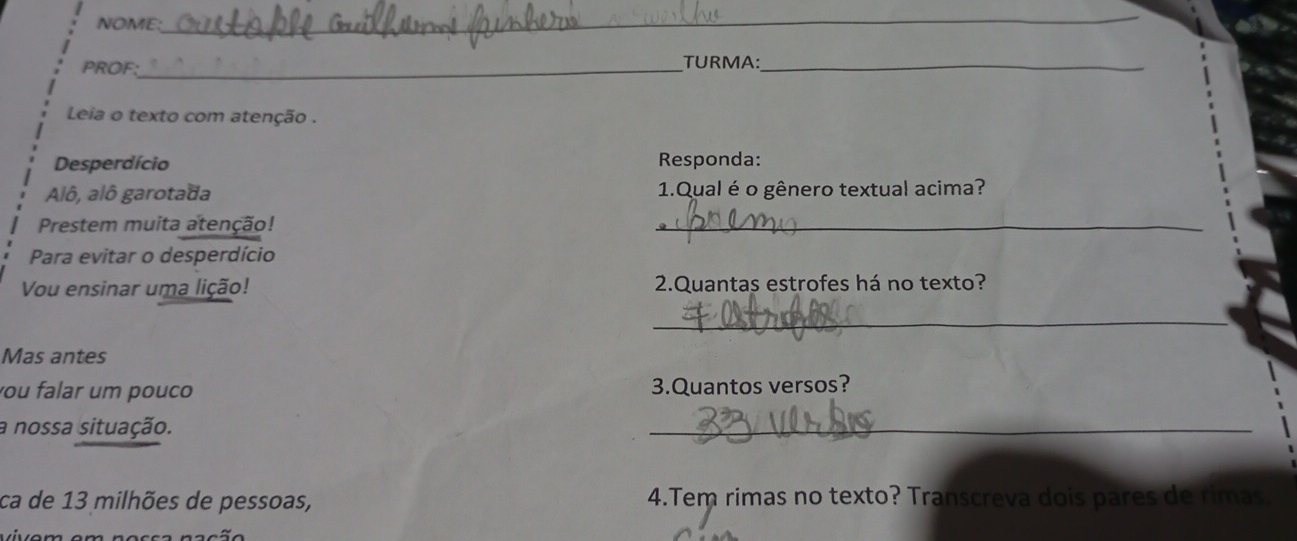 NOME: Gustavo Guilherme Pinheiro
PROF: TURMA:
Leia o texto com atenção .
Desperdício
Alô, alô garotada
Prestem muita atenção!
Para evitar o desperdício
Vou ensinar uma lição!
Mas antes
vou falar um pouco
a nossa situação.
ca de 13 milhões de pessoas,
vivem em nossa nação
Responda:
1.Qual é o gênero textual acima?
. poema
2.Quantas estrofes há no texto?
7 estrofes
3.Quantos versos?
33 versos
4.Tem rimas no texto? Transcreva dois pares de rimas.
Sim